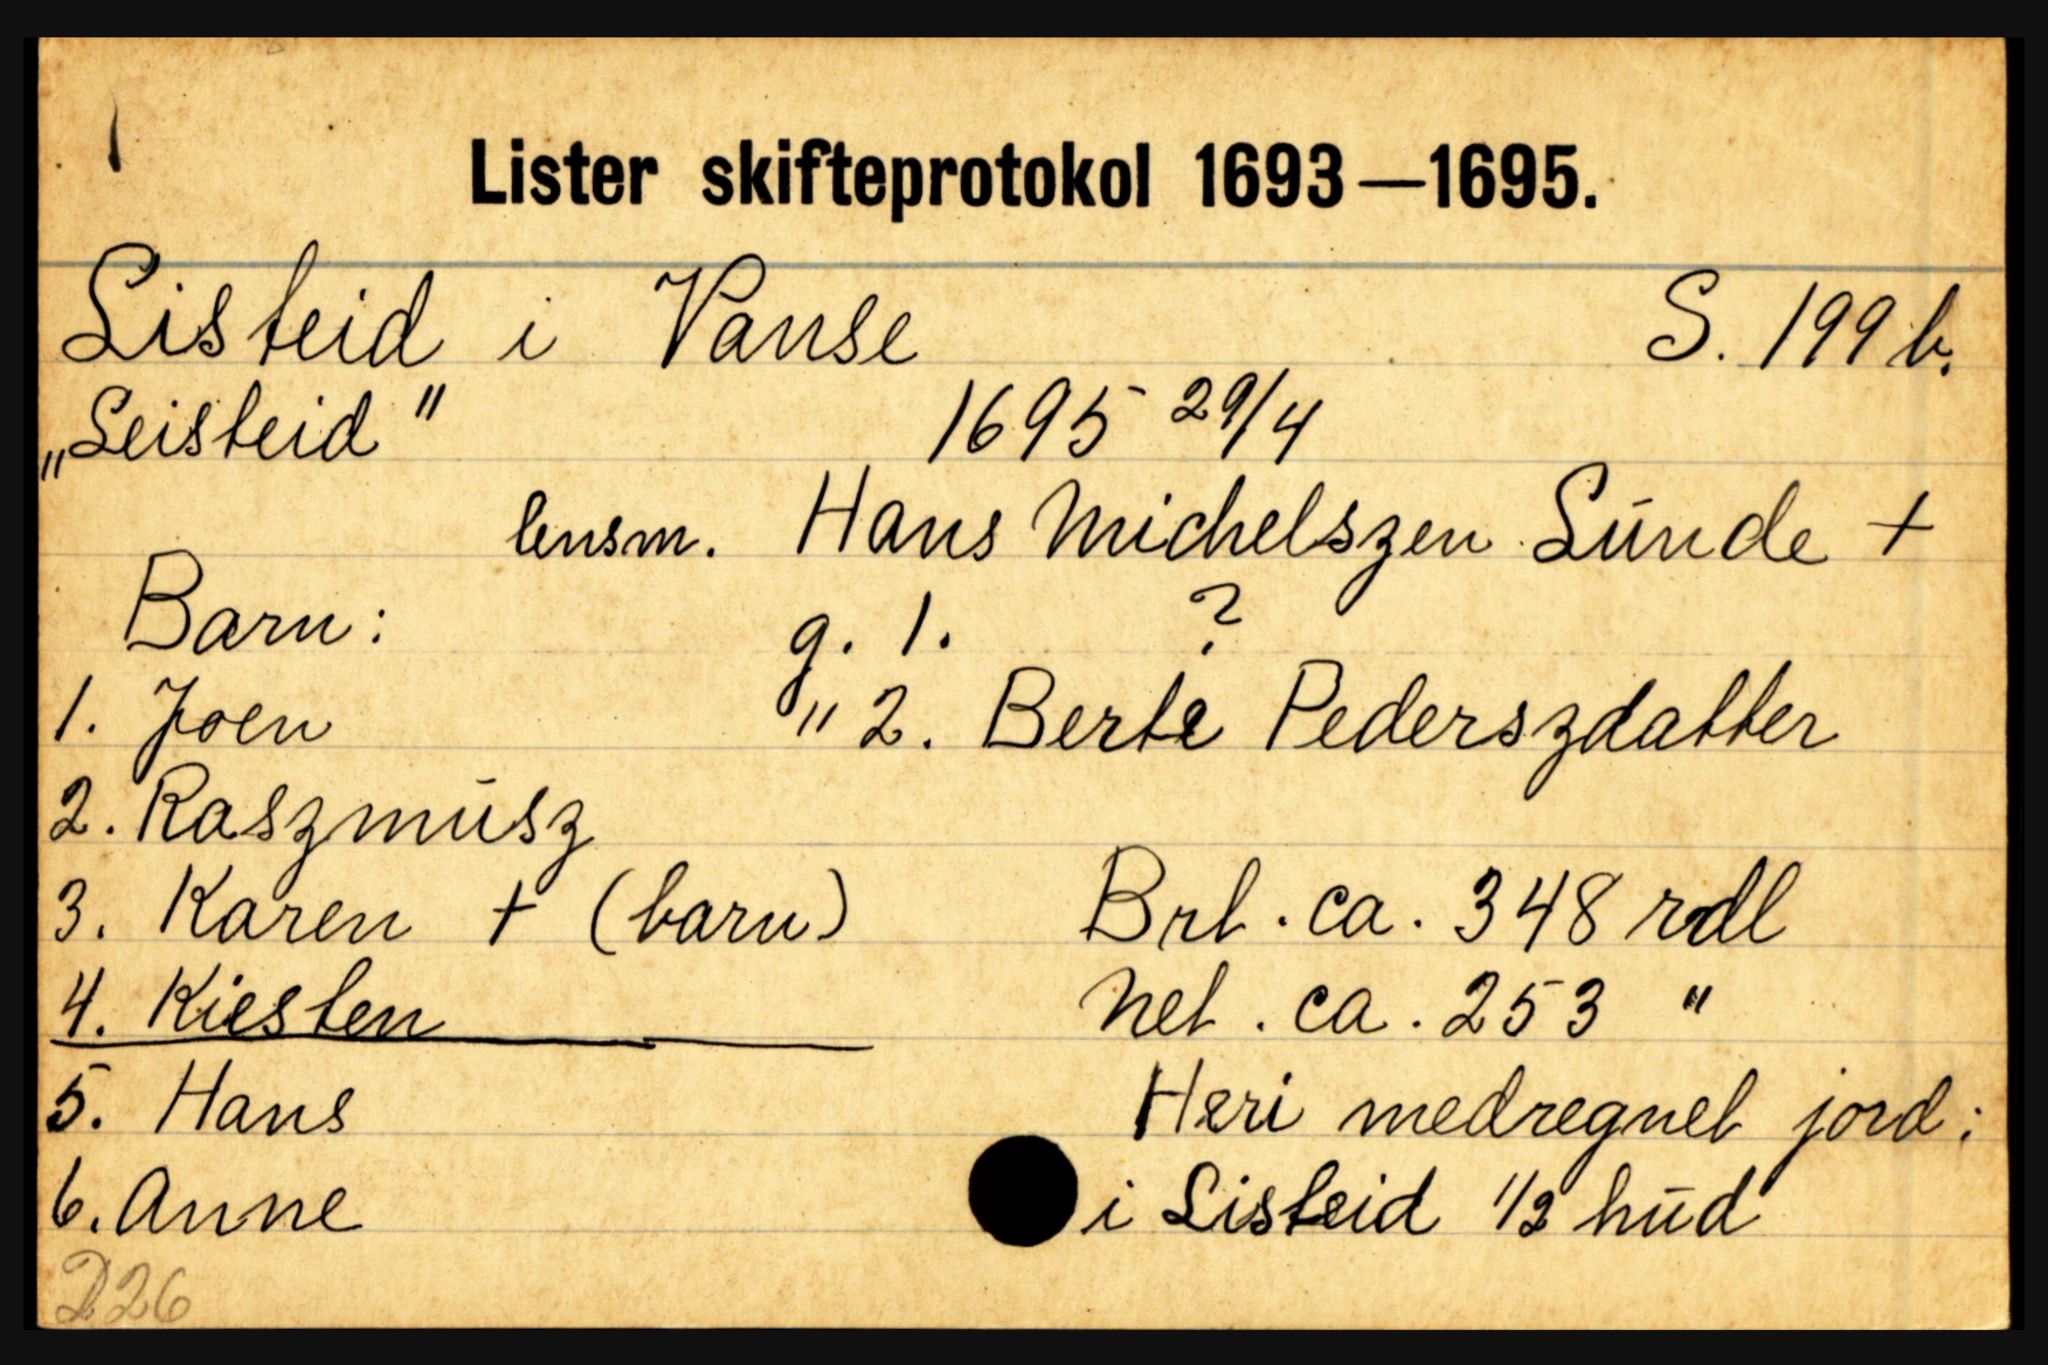 Lister skifteprotokol 1693—1695.
Listeid i Vanse S. 199 b.
„Leisteid" 1695 29/4
lensm. Hans Michelszen Lunde +
Barn: g. 1. ?
1. Joen " 2. Berte Pederszdatter
2. Raszmusz
3. Karen + (barn) Brt. ca. 348 rdl
4. Kiesten Net. ca. 253 "
5. Hans Heri medregnet jord:
6. Anne i Listeid 1/2 hud
D26